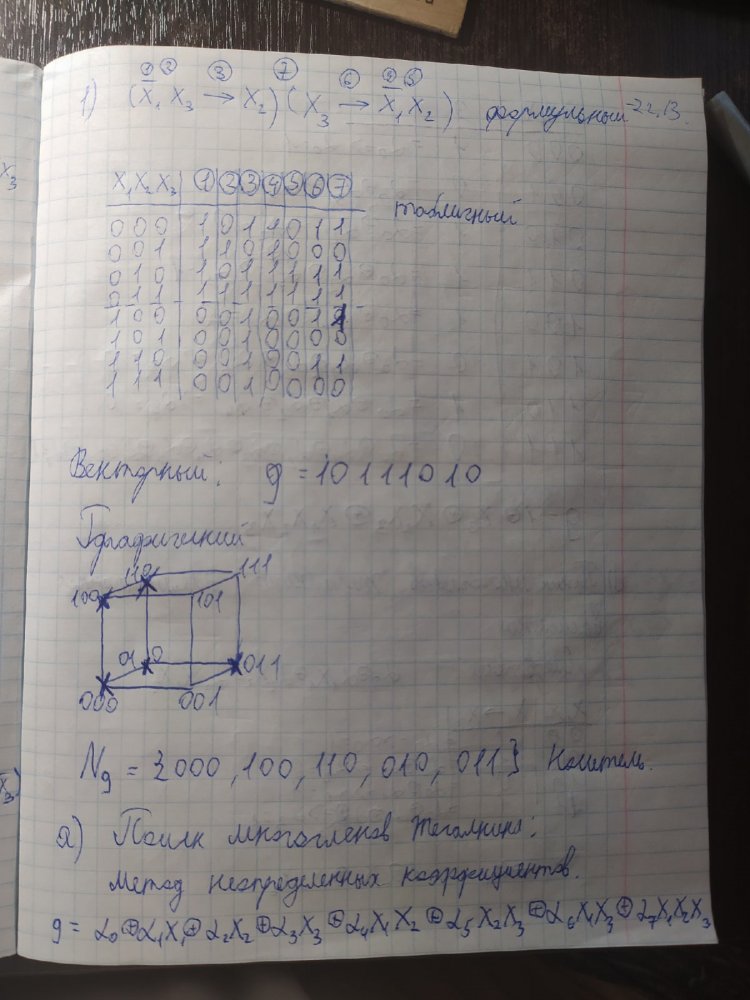 ① ② ③ ⑦ ⑥ ④ ⑤
1) (X̅₁ X₃ → X₂) (X₃ → X̅₁ X₂) формульный
X₁ X₂ X₃ | ① ② ③ ④ ⑤ ⑥ ⑦
табличный
0 0 0 | 1 0 1 1 0 1 1
0 0 1 | 1 1 0 1 0 0 0
0 1 0 | 1 0 1 1 1 1 1
0 1 1 | 1 1 1 1 1 1 1
1 0 0 | 0 0 1 0 0 1 1
1 0 1 | 0 0 1 0 0 0 0
1 1 0 | 0 0 1 0 0 1 1
1 1 1 | 0 0 1 0 0 0 0
Векторный: g = 10111010
Графический
110 111
100 101
010 011
000 001
Ng = {000, 100, 110, 010, 011} Носитель.
2) Поиск многочленов Жегалкина:
Метод неопределенных коэффициентов.
g = α₀ ⊕ α₁X₁ ⊕ α₂X₂ ⊕ α₃X₃ ⊕ α₄X₁X₂ ⊕ α₅X₂X₃ ⊕ α₆X₁X₃ ⊕ α₇X₁X₂X₃
X₃
X₃)